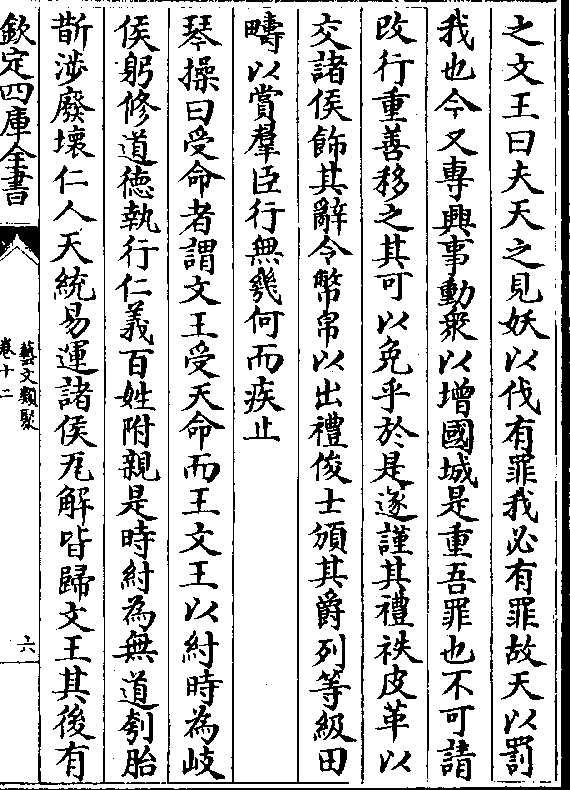 之文王曰夫天之見妖以伐有罪我必有罪故天以罰
我也今又專興事動衆以增國城是重吾罪也不可請
改行重善移之其可以免乎於是遂謹其禮袟皮革以
交諸侯飾其辭令幣帛以出禮俊士頒其爵列等級田
疇以賞羣臣行無幾何而疾止
琴操曰受命者謂文王受天命而王文王以紂時為岐
侯躬修道德執行仁義百姓附親是時紂為無道刳胎
斮涉廢壞仁人天統易運諸侯瓦解皆歸文王其後有
欽定四庫全書
藝文類聚
卷十二
六